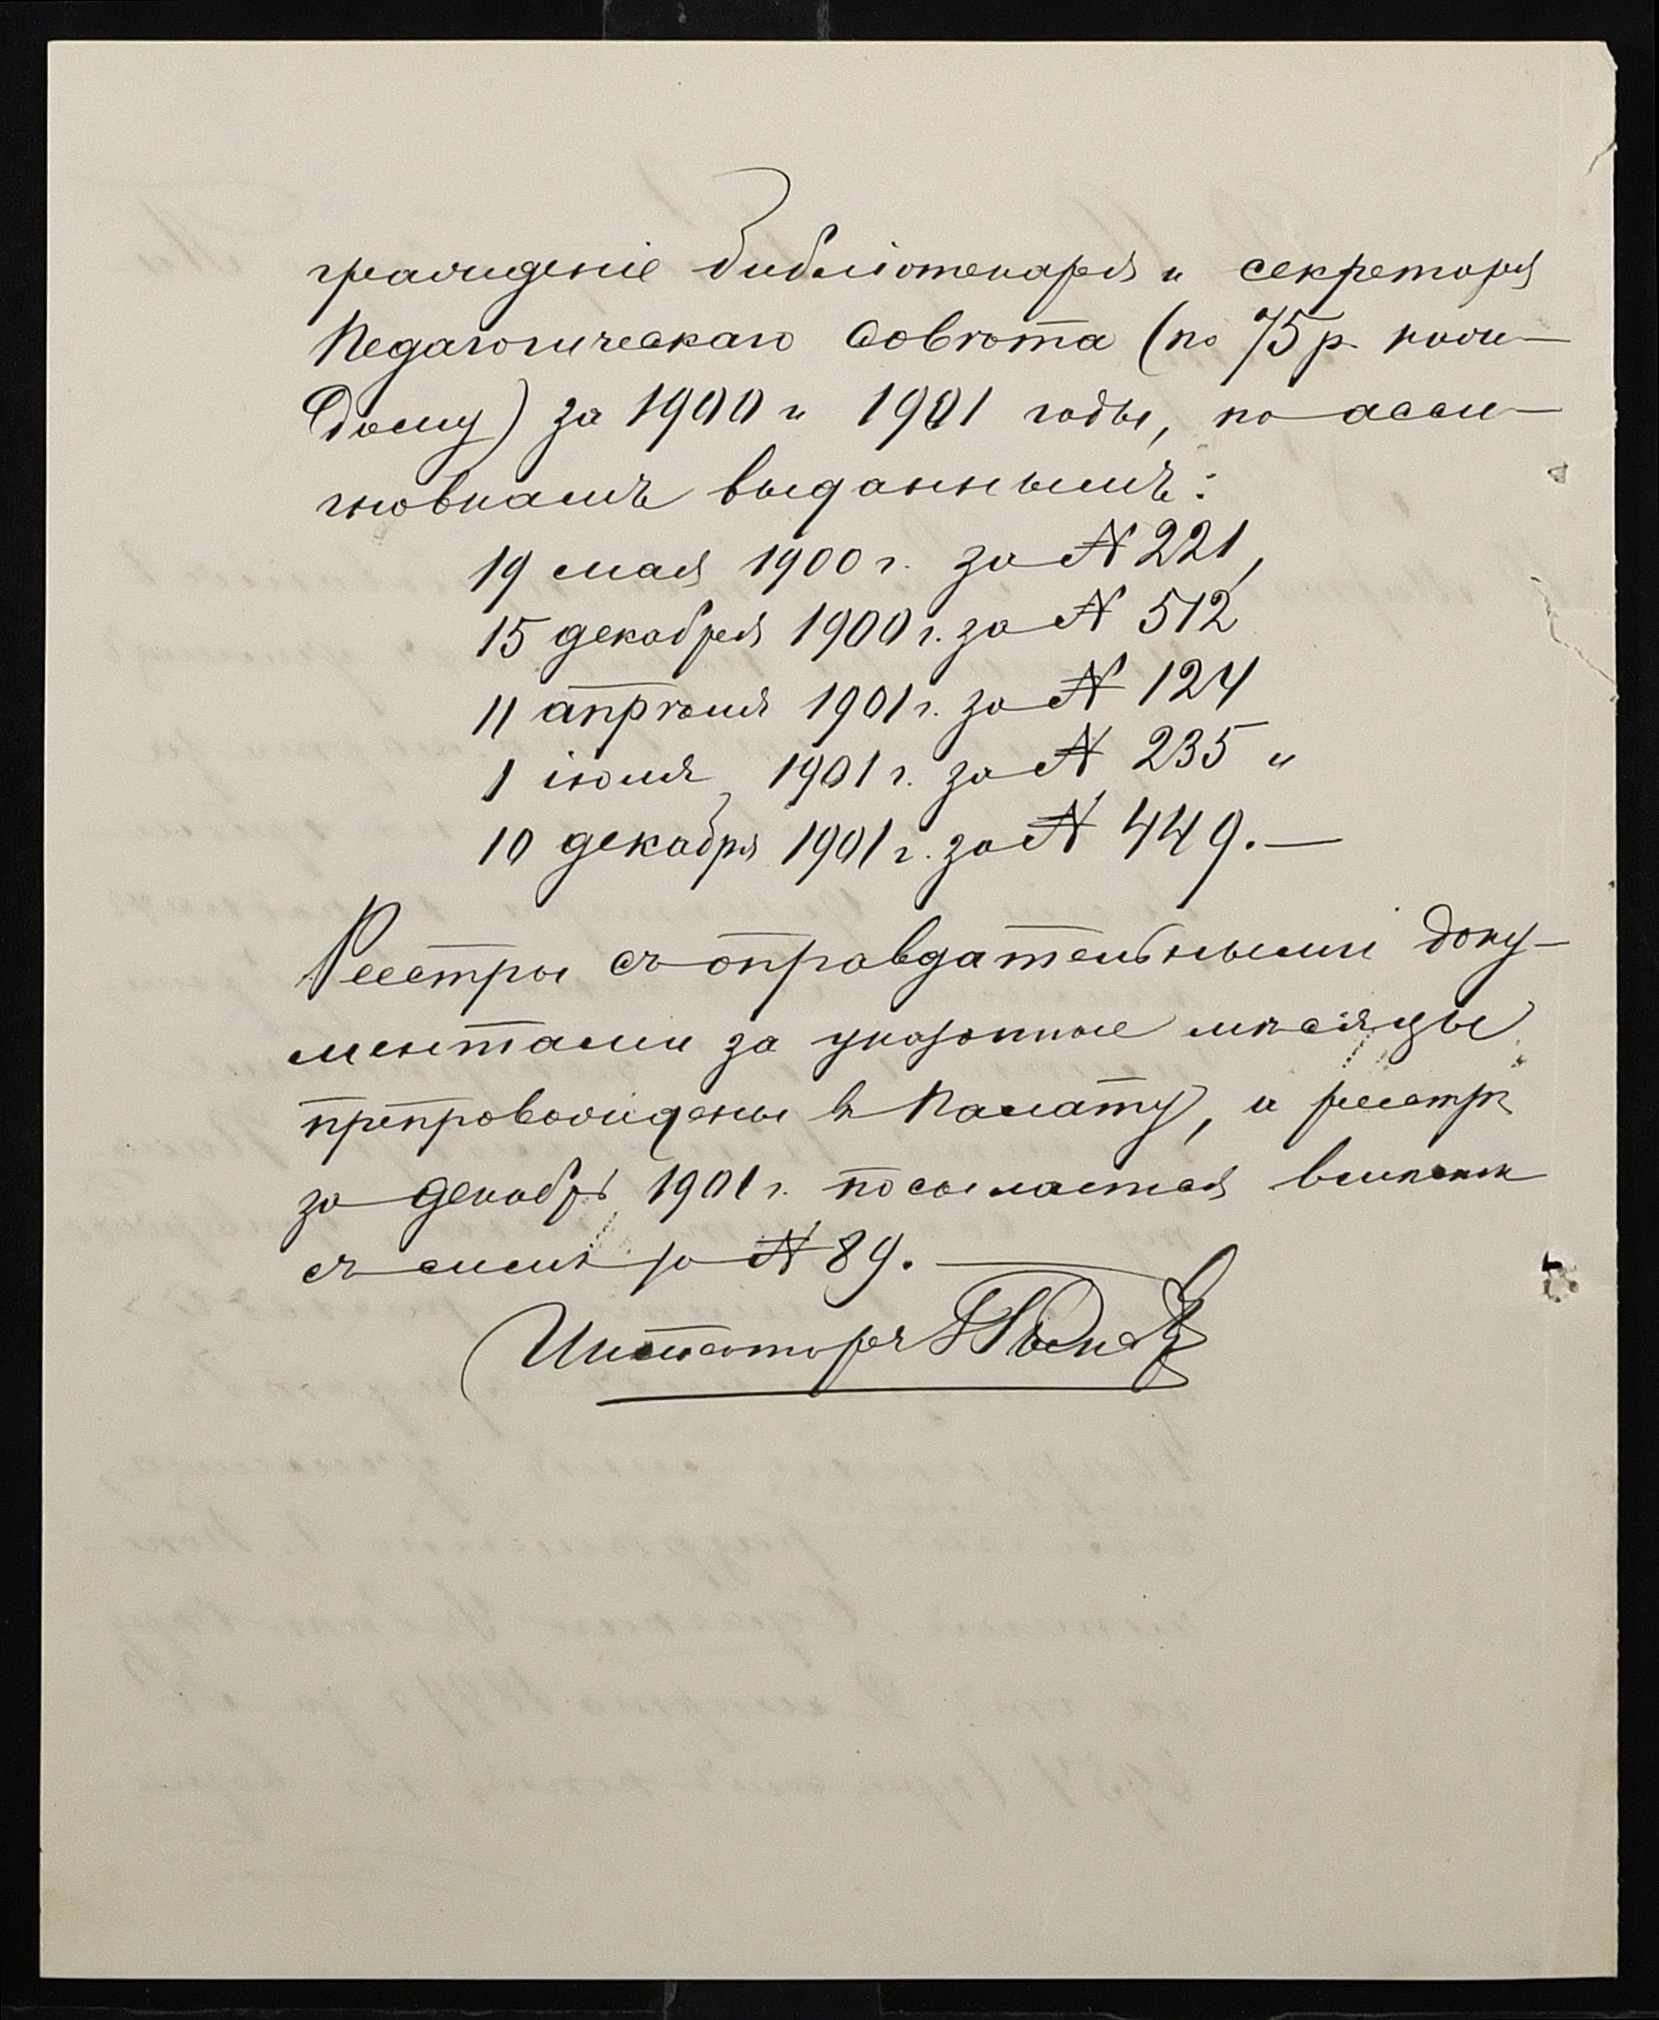 граждение библіотекаря и секретаря
Педагогическаго Совѣта (по 75 р. каж-
дому) за 1900 и 1901 годы, по асси-
гновкамъ выданнымъ:
19 мая 1900 г. за № 221,
15 декабря 1900 г. за № 512
11 апрѣля 1901 г. за № 124
1 іюля 1901 г. за № 235 и
10 декабря 1901 г. за № 449.—
Реестры съ оправдательными доку-
ментами за указанные мѣсяцы
препровождены в Палату, и реестръ
за декабрь 1901 г. посылается
съ симъ за № 89.
Инспекторъ